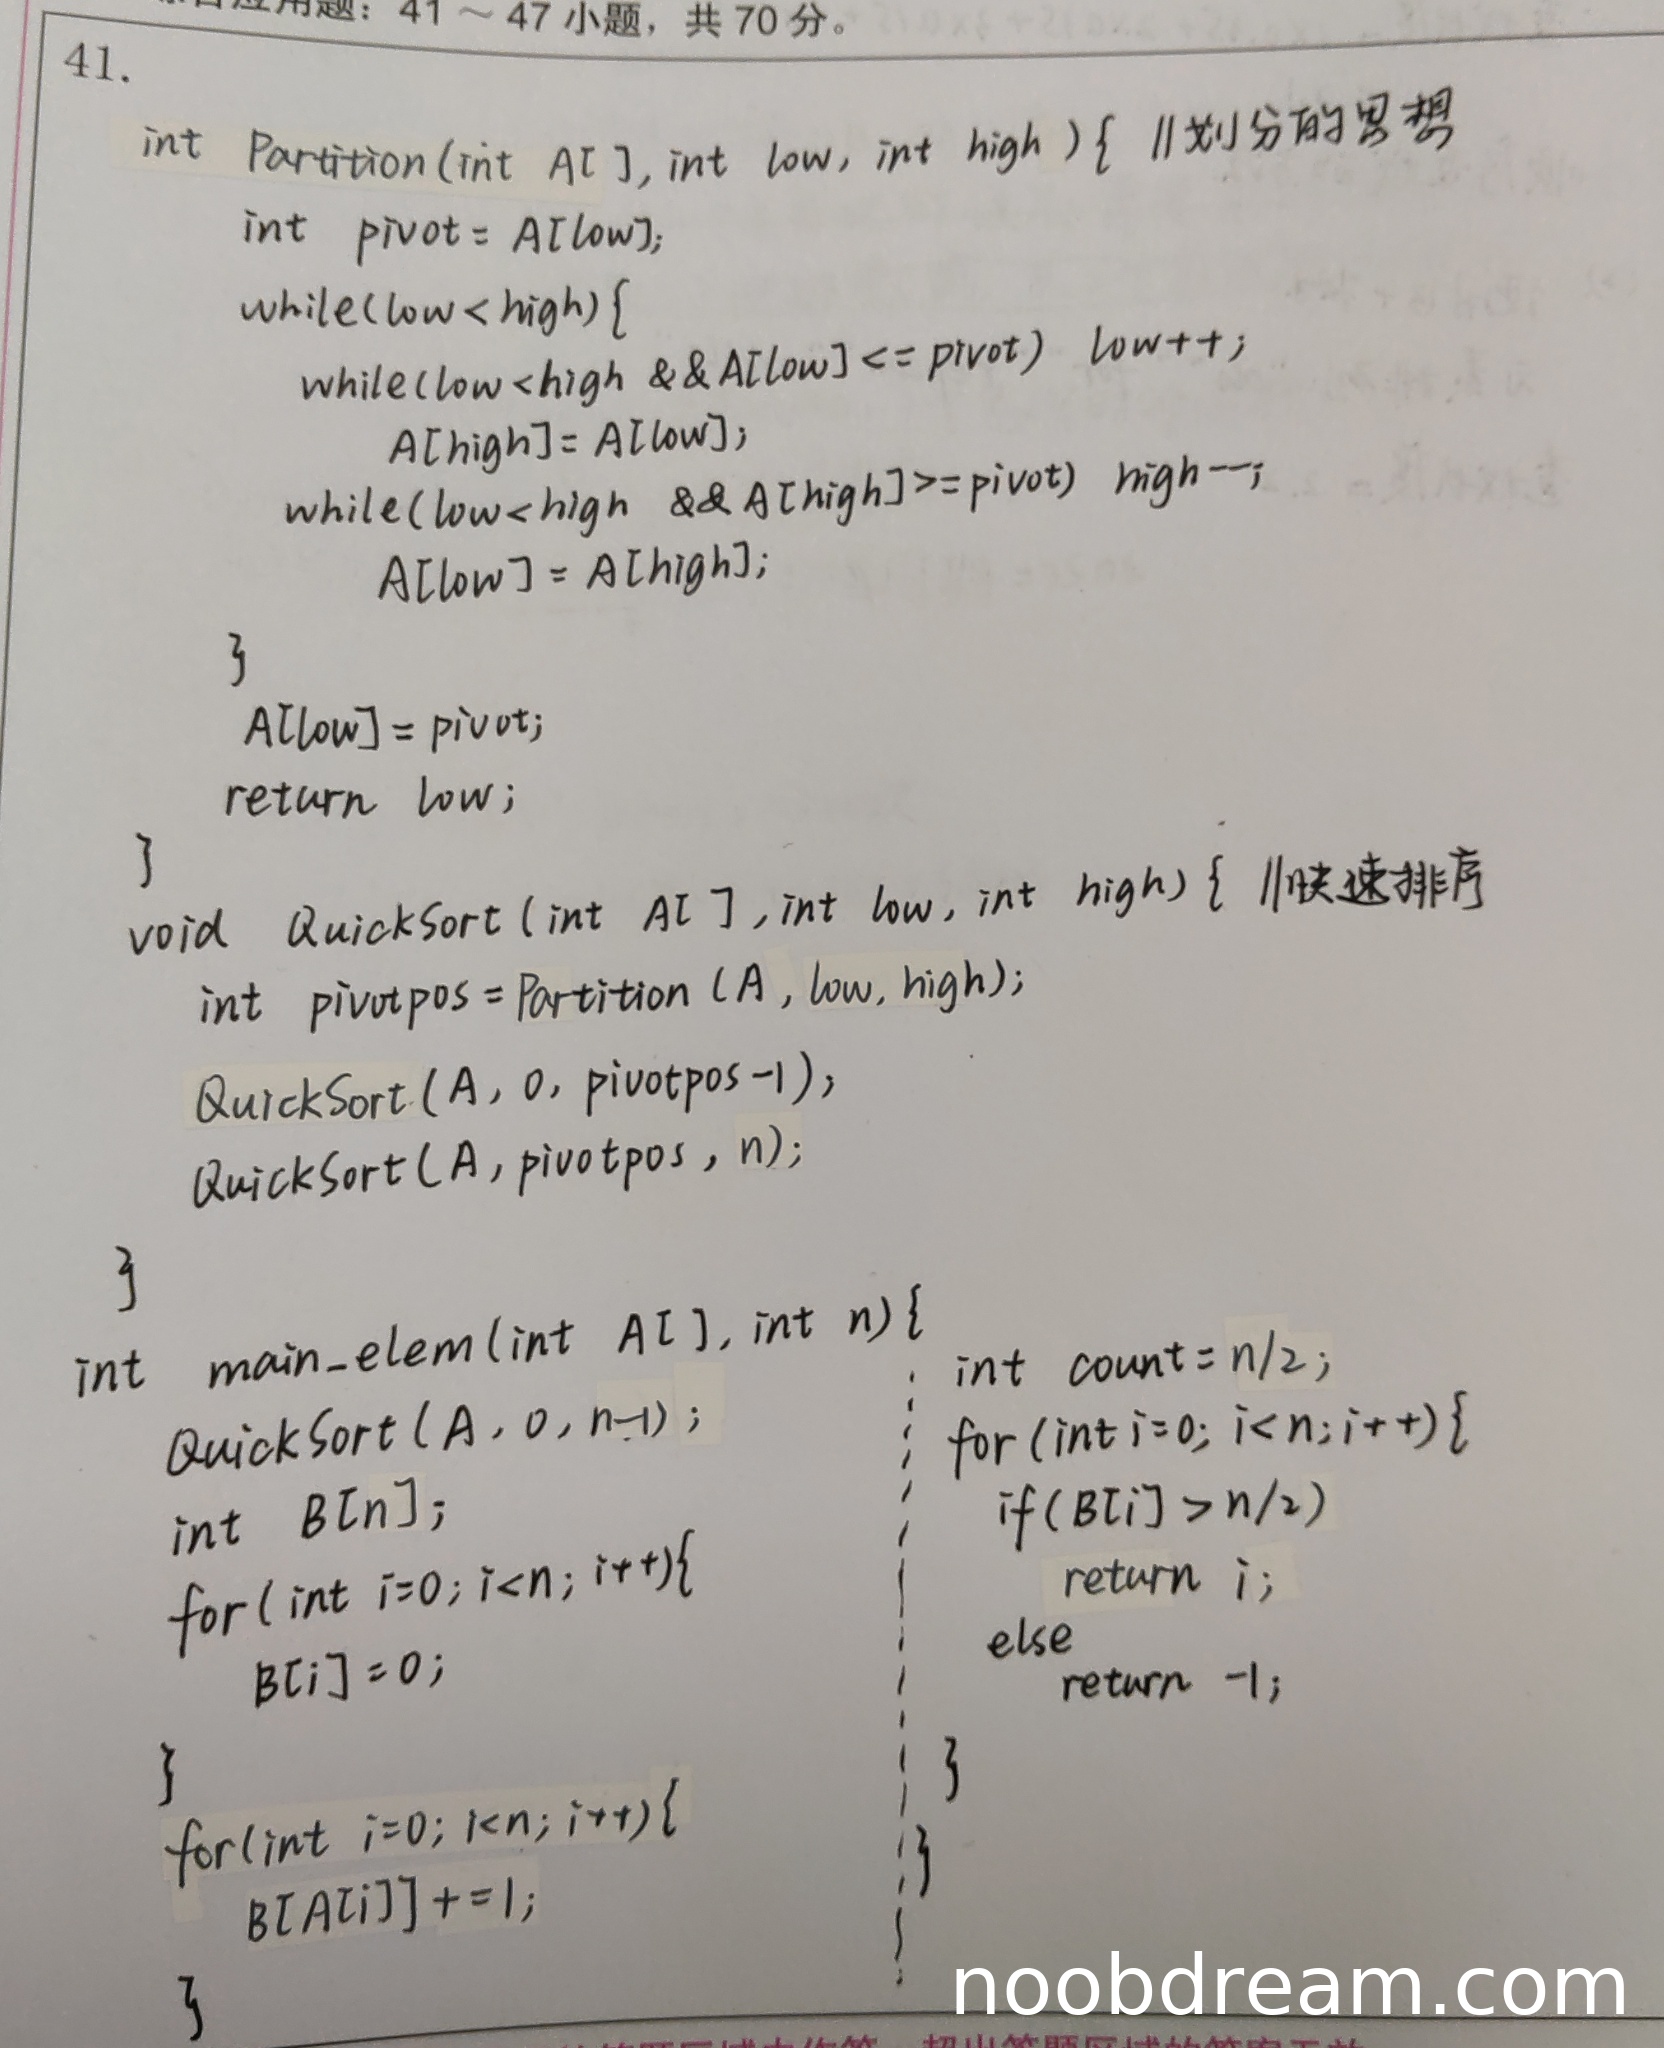 应用题：41 ～ 47 小题，共 70 分。
41.
int Partition(int A[ ], int low, int high ){ //划分的思想
int pivot = A[low];
while(low < high){
while(low<high && A[low] <= pivot) low++;
A[high] = A[low];
while(low<high && A[high] >= pivot) high--;
A[low] = A[high];
}
A[low] = pivot;
return low;
}
void QuickSort(int A[ ], int low, int high) { //快速排序
int pivotpos = Partition (A, low, high);
QuickSort(A, 0, pivotpos-1);
QuickSort(A, pivotpos, n);
}
int main_elem(int A[ ], int n){
QuickSort(A, 0, n-1);
int B[n];
for(int i=0; i<n; i++){
B[i] = 0;
}
for(int i=0; i<n; i++){
B[A[i]] +=1;
}
int count = n/2;
for(int i=0; i<n; i++){
if(B[i] > n/2)
return i;
else
return -1;
}
}
noobdream.com